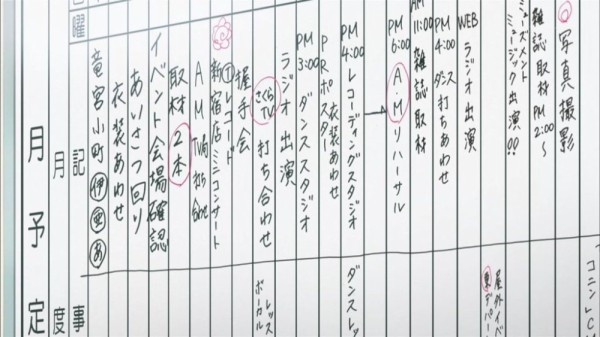 写真撮影
雑誌取材 PM2:00〜
ューズメント
ミュージック出演!!
WEB ラジオ出演
PM4:00 ダンス打ちあわせ
AM11:00 雑誌取材
PM6:00 A.Mリハーサル
PM4:00 レコーディングスタジオ
PRポスター 衣装あわせ
PM3:00 ダンススタジオ
ラジオ出演
さくらTV 打ち合わせ
握手会
①レコード
新宿店ミニコンサート
AM TV局打ち合わせ
取材 2本
イベント会場確認
あいさつ回り
衣装あわせ
竜宮小町 伊 亜 あ
コニンLC
屋外イベ
東デパー
ダンスレッ
レッス
ボーカル
曜
記事
月度
月予定